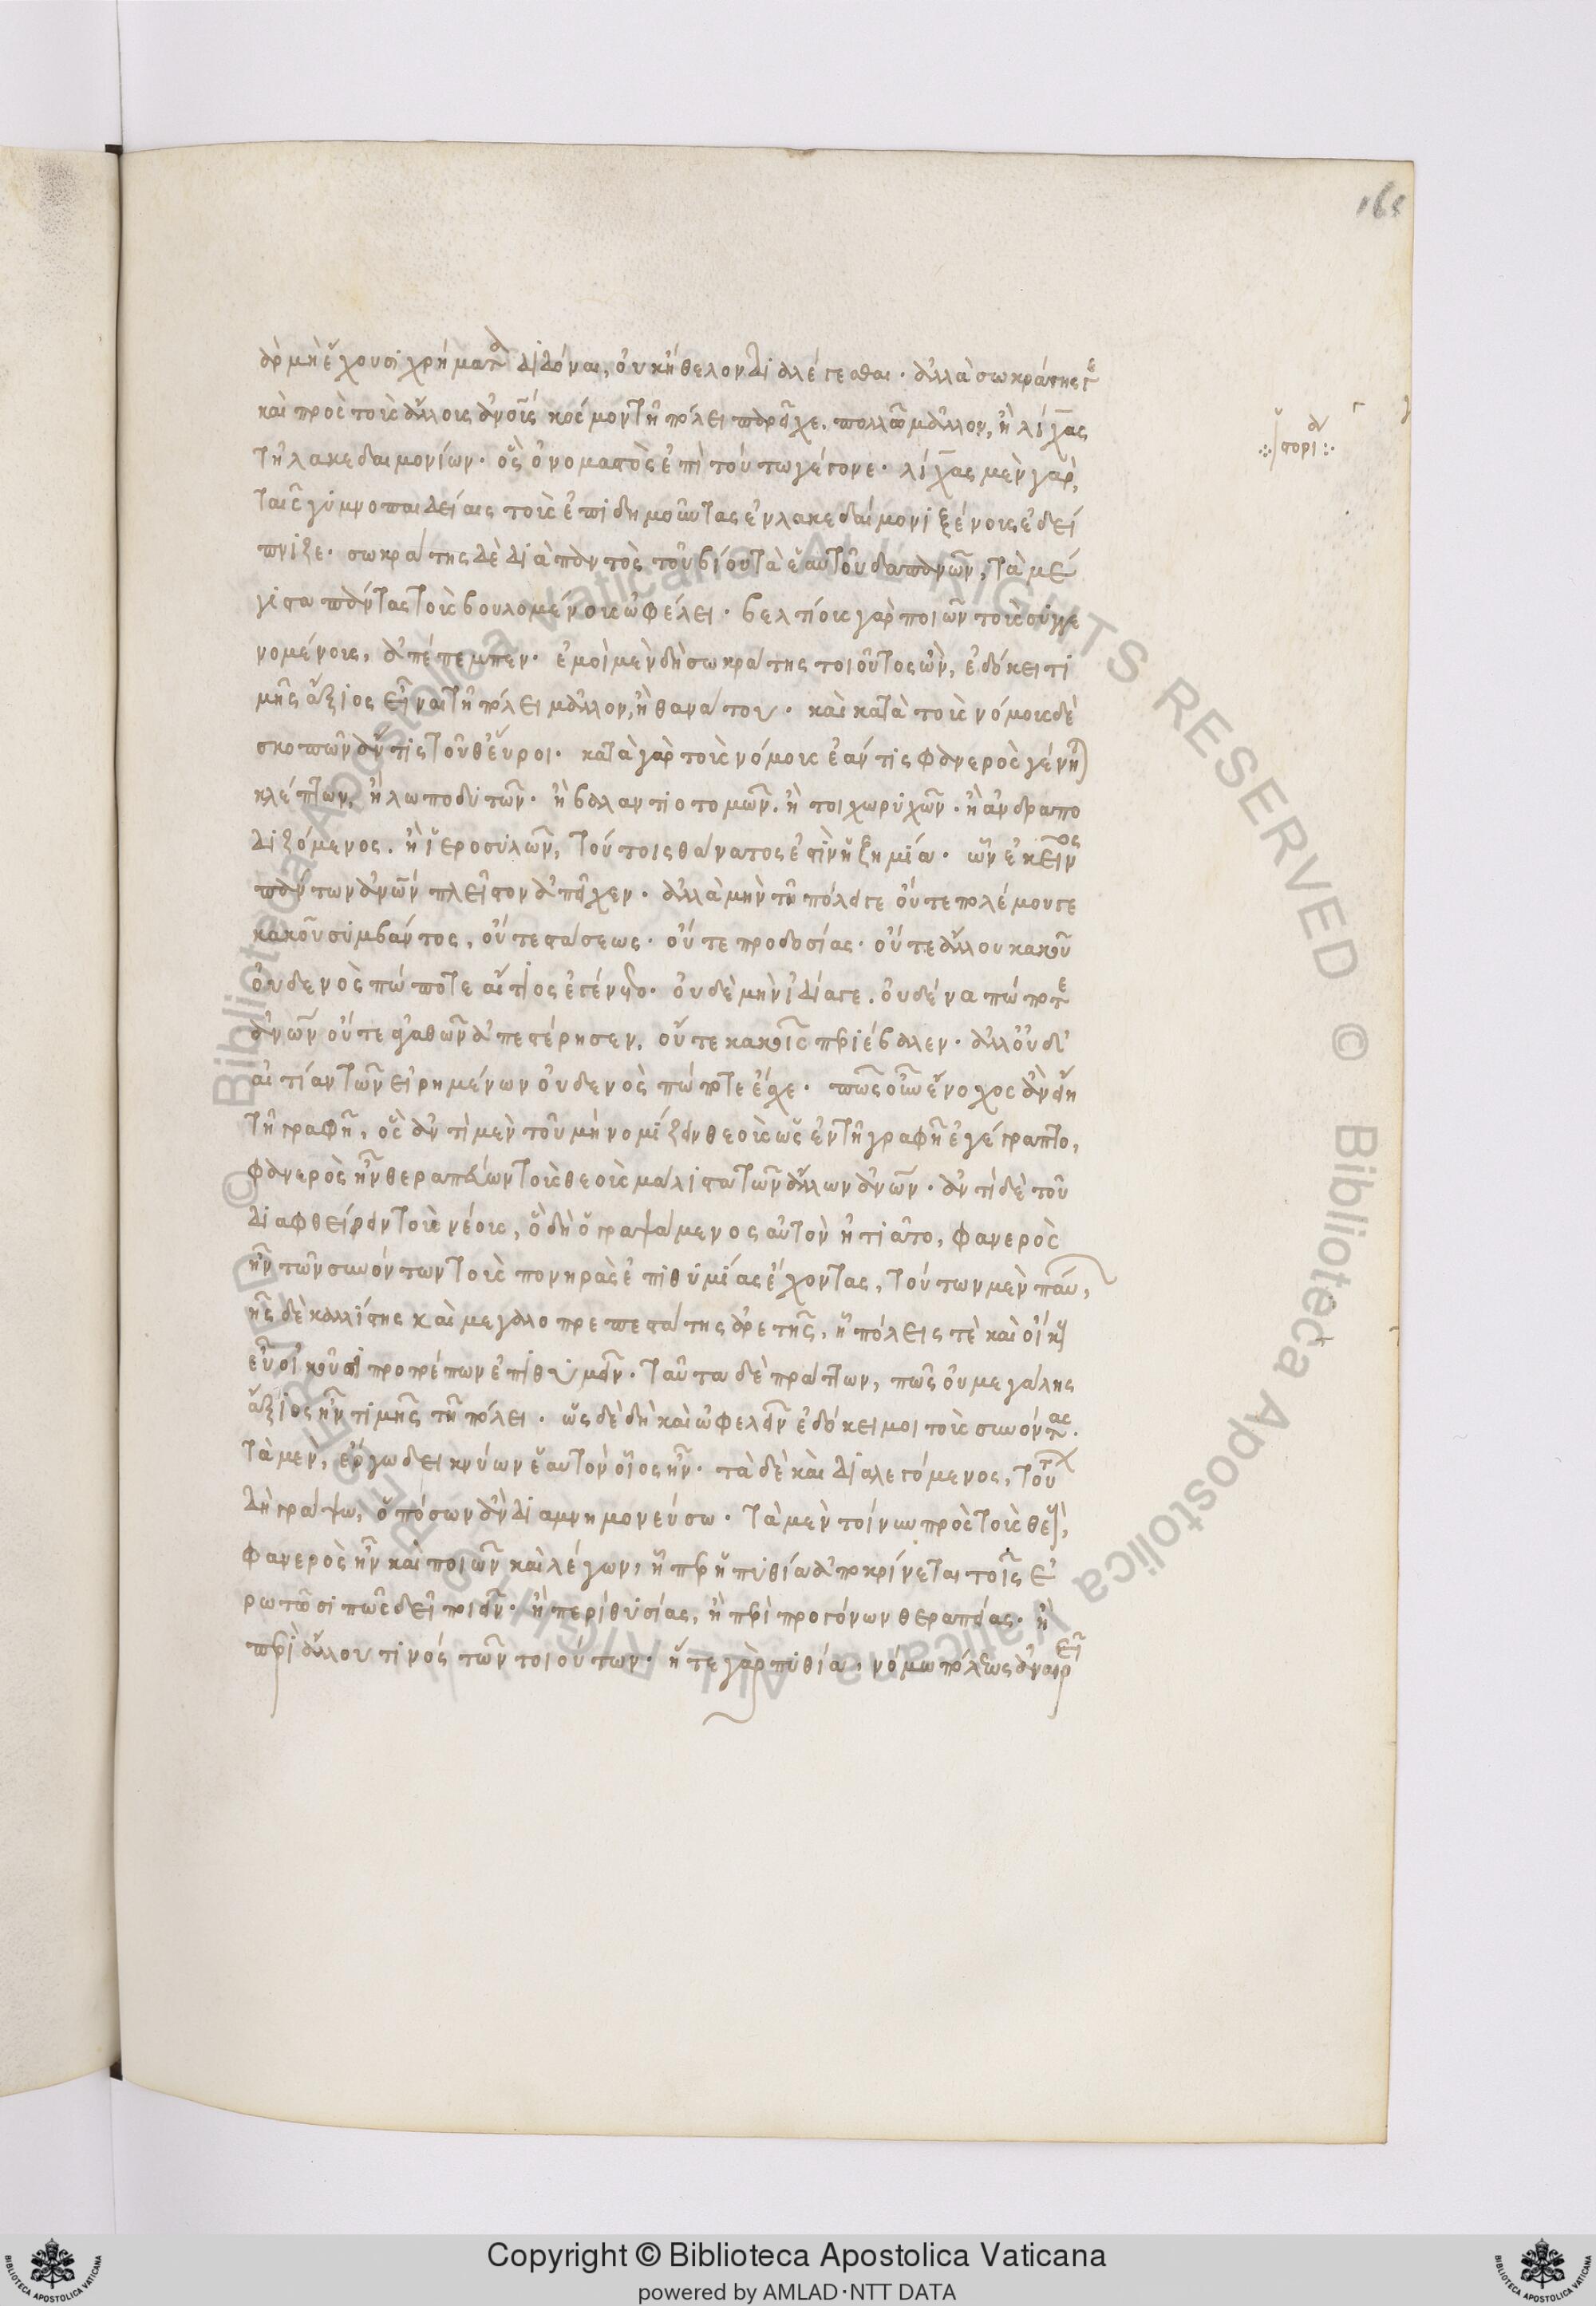 165
γὰρ μὴ ἔχουσι χρήματα διδόναι, οὐκ ἤθελον διαλέγεσθαι. ἀλλὰ σωκράτης γε
καὶ πρὸς τοὺς ἄλλους ἀνους κόσμον τῆ πόλει παρεῖχε. πολλῶ μᾶλλον, ἢ λίχας
τῆ λακεδαιμονίων. ὃς ὀνομαστὸς ἐπὶ τούτω γέγονε. λίχας μὲν γὰρ,
ταῖς γυμνοπαιδείαις τοὺς ἐπιδημοῦντας ἐν λακεδαίμονι ξένους ἐδεί
πνιζε. σωκράτης δὲ διὰ παντὸς τοῦ βίου τὰ ἑαυτοῦ δαπανῶν, τὰ μέ
γιστα πάντας τοὺς βουλομένους ὠφέλει. βελτίους γὰρ ποιῶν τοὺς συγγε
νομένους, ἀπέπεμπεν. ἐμοὶ μὲν δὴ σωκράτης τοιοῦτος ὢν, ἐδόκει τι
μῆς ἄξιος εἶναι τῆ πόλει μᾶλλον, ἢ θανάτου. καὶ κατὰ τοὺς νόμους δὲ
σκοπῶν ἄν τις τοῦθ εὕροι. κατὰ γὰρ τοὺς νόμους ἐάν τις φανερὸς γένηται
κλέπτων, ἢ λωποδυτῶν. ἢ βαλαντιοτομῶν. ἢ τοιχωρυχῶν. ἢ ἀνδραπο
διζόμενος. ἢ ἱεροσυλῶν, τούτοις θάνατος ἐστὶν ἡ ζημία. ὧν ἐκεῖνος
πάντων ἀνων πλεῖστον ἀπεῖχεν. ἀλλὰ μὴν τῆ πόλει γε οὔτε πολέμου γε
κακοῦ συμβάντος, οὔτε στάσεως. οὔτε προδοσίας. οὔτε ἄλλου κακοῦ
οὐδενὸς πώποτε αἴτιος ἐγένετο. οὐδὲ μὴν ἰδία γε. οὐδένα πώποτε
ἀνων οὔτε ἀγαθῶν ἀπεστέρησεν, οὔτε κακοῖς περιέβαλεν. ἀλλ οὐδ
αἰτίαν τῶν εἰρημένων οὐδενὸς πώποτε ἔσχε. πῶς οὖν ἔνοχος ἂν εἴη
τῆ γραφῆ, ὃς ἀντὶ μὲν τοῦ μὴ νομίζειν θεοὺς ὡς ἐν τῆ γραφῆ ἐγέγραπτο,
φανερὸς ἦν θεραπεύων τοὺς θεοὺς μάλιστα τῶν ἄλλων ἀνων. ἀντὶ δὲ τοῦ
διαφθείρειν τοὺς νέους, ὃ δὴ ὁ γραψάμενος αὐτὸν ἠτιᾶτο, φανερὸς
ἦν τῶν συνόντων τοὺς πονηρὰς ἐπιθυμίας ἔχοντας, τούτων μὲν παύων,
τῆς δὲ καλλίστης καὶ μεγαλοπρεπεστάτης ἀρετῆς, ἧ πόλεις τὲ καὶ οἴκους
εὖ οἰκοῦσι προτρέπων ἐπιθυμεῖν. ταῦτα δὲ πράττων, πῶς οὐ μεγάλης
ἄξιος ἦν τιμῆς τῆ πόλει. ὡς δὲ δὴ καὶ ὠφελεῖν ἐδόκει μοι τοὺς συνόντας.
τὰ μὲν, ἔργω δεικνύων ἑαυτὸν οἷος ἦν. τὰ δὲ καὶ διαλεγόμενος, τούτων
δὴ γράψω, ὁπόσων ἂν διαμνημονεύσω. τὰ μὲν τοίνυν πρὸς τοὺς θεοὺς,
φανερὸς ἦν καὶ ποιῶν καὶ λέγων, ἧπερ ἡ πυθία ἀποκρίνεται τοῖς ἐ
ρωτῶσι πῶς δεῖ ποιεῖν. ἢ περὶ θυσίας, ἢ περὶ προγόνων θεραπείας. ἢ
περὶ ἄλλου τινός τῶν τοιούτων. ἥ τε γὰρ πυθία, νόμω πόλεως ἀναιρεῖ
ἱστορίαν